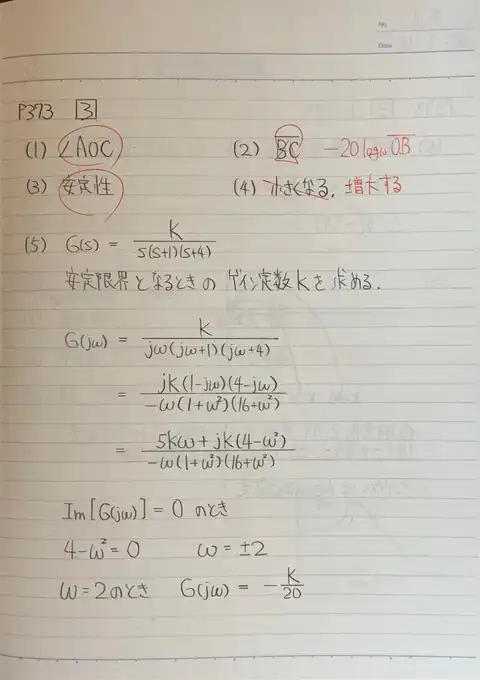 No.
Date
P373 3
(1) ∠AOC (2) BC̅ -20log₁₀O̅B̅
(3) 安定性 (4) 小さくなる, 増大する
(5) G(s) = K / s(s+1)(s+4)
安定限界となるときの ゲイン定数Kを求める.
G(jω) = K / jω(jω+1)(jω+4)
= jK(1-jω)(4-jω) / -ω(1+ω²)(16+ω²)
= 5Kω+jK(4-ω²) / -ω(1+ω²)(16+ω²)
Im[G(jω)] = 0 のとき
4-ω²=0 ω=±2
ω=2のとき G(jω) = -K/20